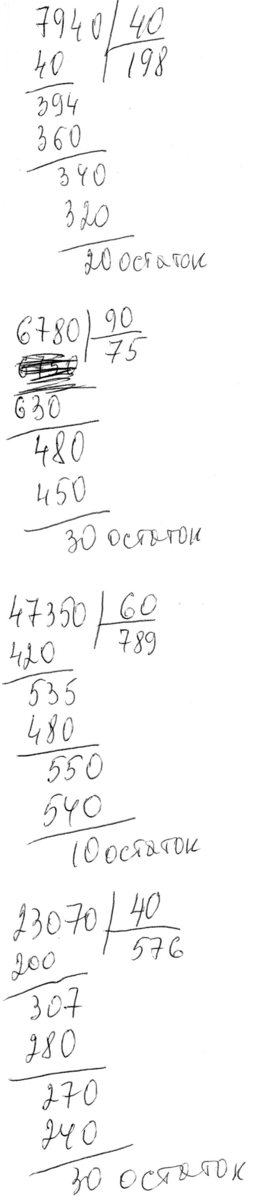 7940 40
40 198
394
360
340
320
20 остаток
6780 90
75
630
480
450
30 остаток
47350 60
420 789
535
480
550
540
10 остаток
23070 40
200 576
307
280
270
240
30 остаток